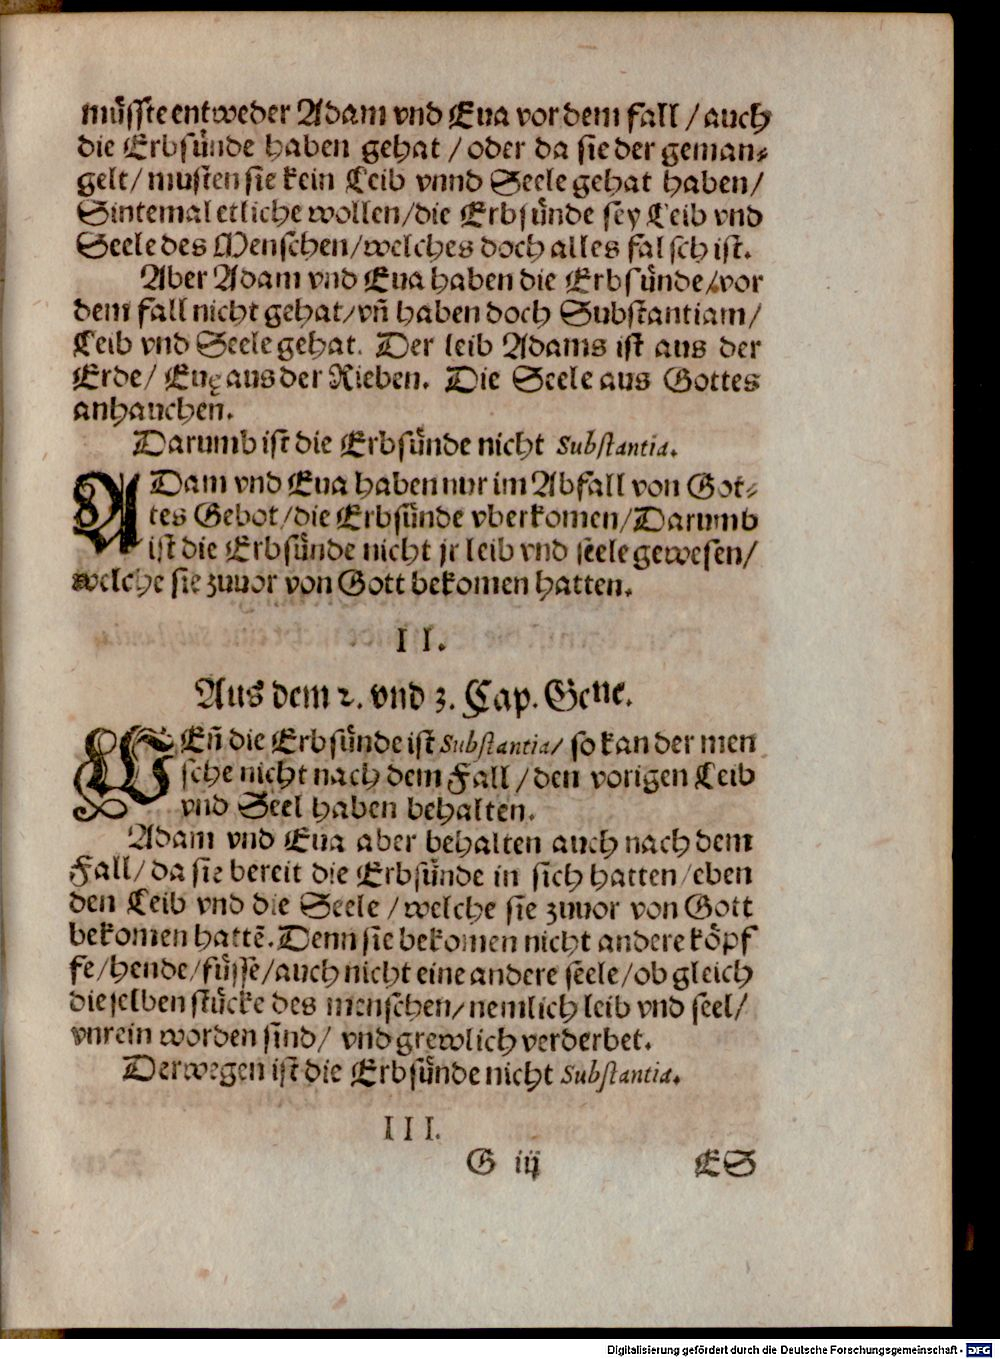 müſſte entweder Adam vnd Eua vor dem fall / auch
die Erbſünde haben gehat / oder da ſie der geman⸗
gelt / muſten ſie kein Leib vnnd Seele gehat haben /
Sintemal etliche wollen / die Erbſünde ſey Leib vnd
Seele des Menſchen / welches doch alles falſch iſt.
Aber Adam vnd Eua haben die Erbſünde / vor
dem fall nicht gehat / vn̄ haben doch Subſtantiam /
Leib vnd Seele gehat. Der leib Adams iſt aus der
Erde / Euę aus der Rieben. Die Seele aus Gottes
anhauchen.
Darumb iſt die Erbſünde nicht Subſtantia.
ADam vnd Eua haben nur im Abfall von Got⸗
tes Gebot / die Erbſünde vberkomen / Darumb
iſt die Erbſünde nicht jr leib vnd ſeele geweſen /
welche ſie zuuor von Gott bekomen hatten.
II.
Aus dem 2. vnd 3. Cap. Gene.
WEn̄ die Erbſünde iſt Subſtantia / ſo kan der men
ſche nicht nach dem Fall / den vorigen Leib
vnd Seel haben behalten.
Adam vnd Eua aber behalten auch nach dem
Fall / da ſie bereit die Erbſünde in ſich hatten / eben
den Leib vnd die Seele / welche ſie zuuor von Gott
bekomen hattē. Denn ſie bekomen nicht andere köpf
fe / hende / füſſe / auch nicht eine andere ſeele / ob gleich
dieſelben ſtücke des menſchen / nemlich leib vnd ſeel /
vnrein worden ſind / vnd grewlich verderbet.
Derwegen iſt die Erbſünde nicht Subſtantia.
III.
G iij ES
Digitalisierung gefördert durch die Deutsche Forschungsgemeinschaft - DFG